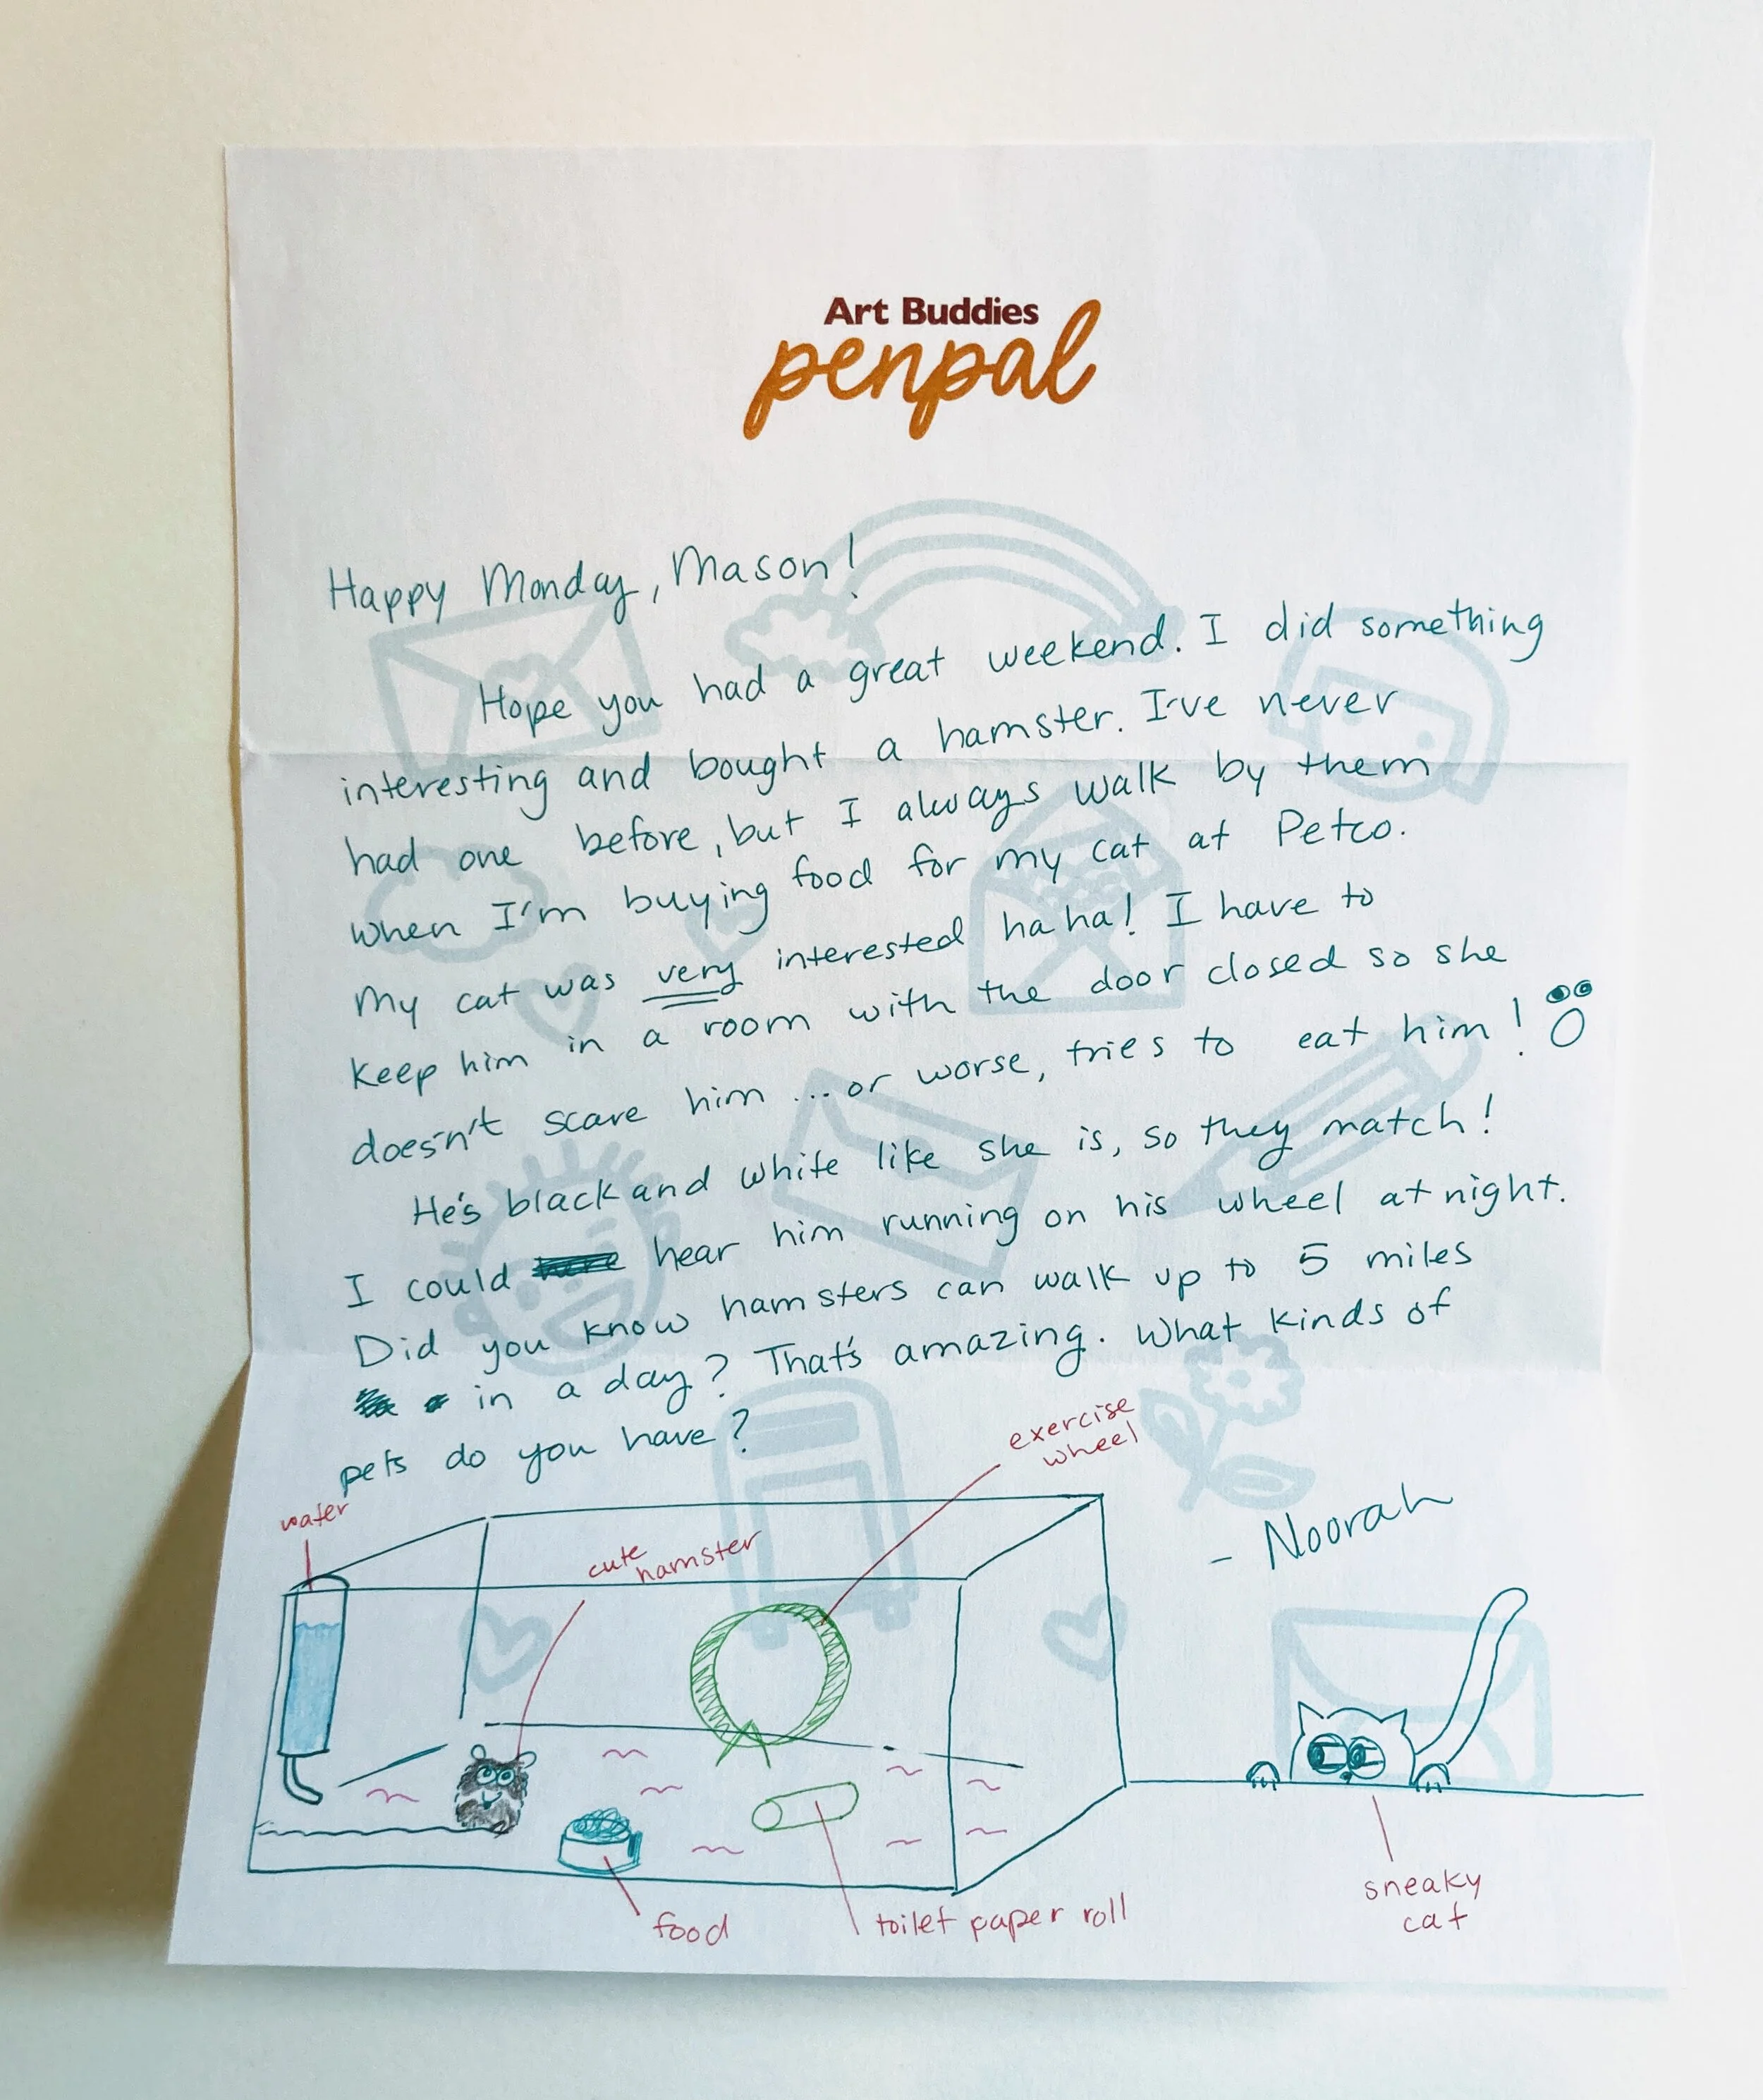 Art Buddies
penpal
Happy Monday, Mason!
Hope you had a great weekend. I did something
interesting and bought a hamster. I've never
had one before, but I always walk by them
when I'm buying food for my cat at Petco.
My cat was very interested haha! I have to
keep him in a room with the door closed so she
doesn't scare him ... or worse, tries to eat him!
He's black and white like she is, so they match!
I could hear him running on his wheel at night.
Did you know hamsters can walk up to 5 miles
in a day? That's amazing. What kinds of
pets do you have?
- Noorah
water
cute
hamster
exercise
wheel
food
toilet paper roll
sneaky
cat